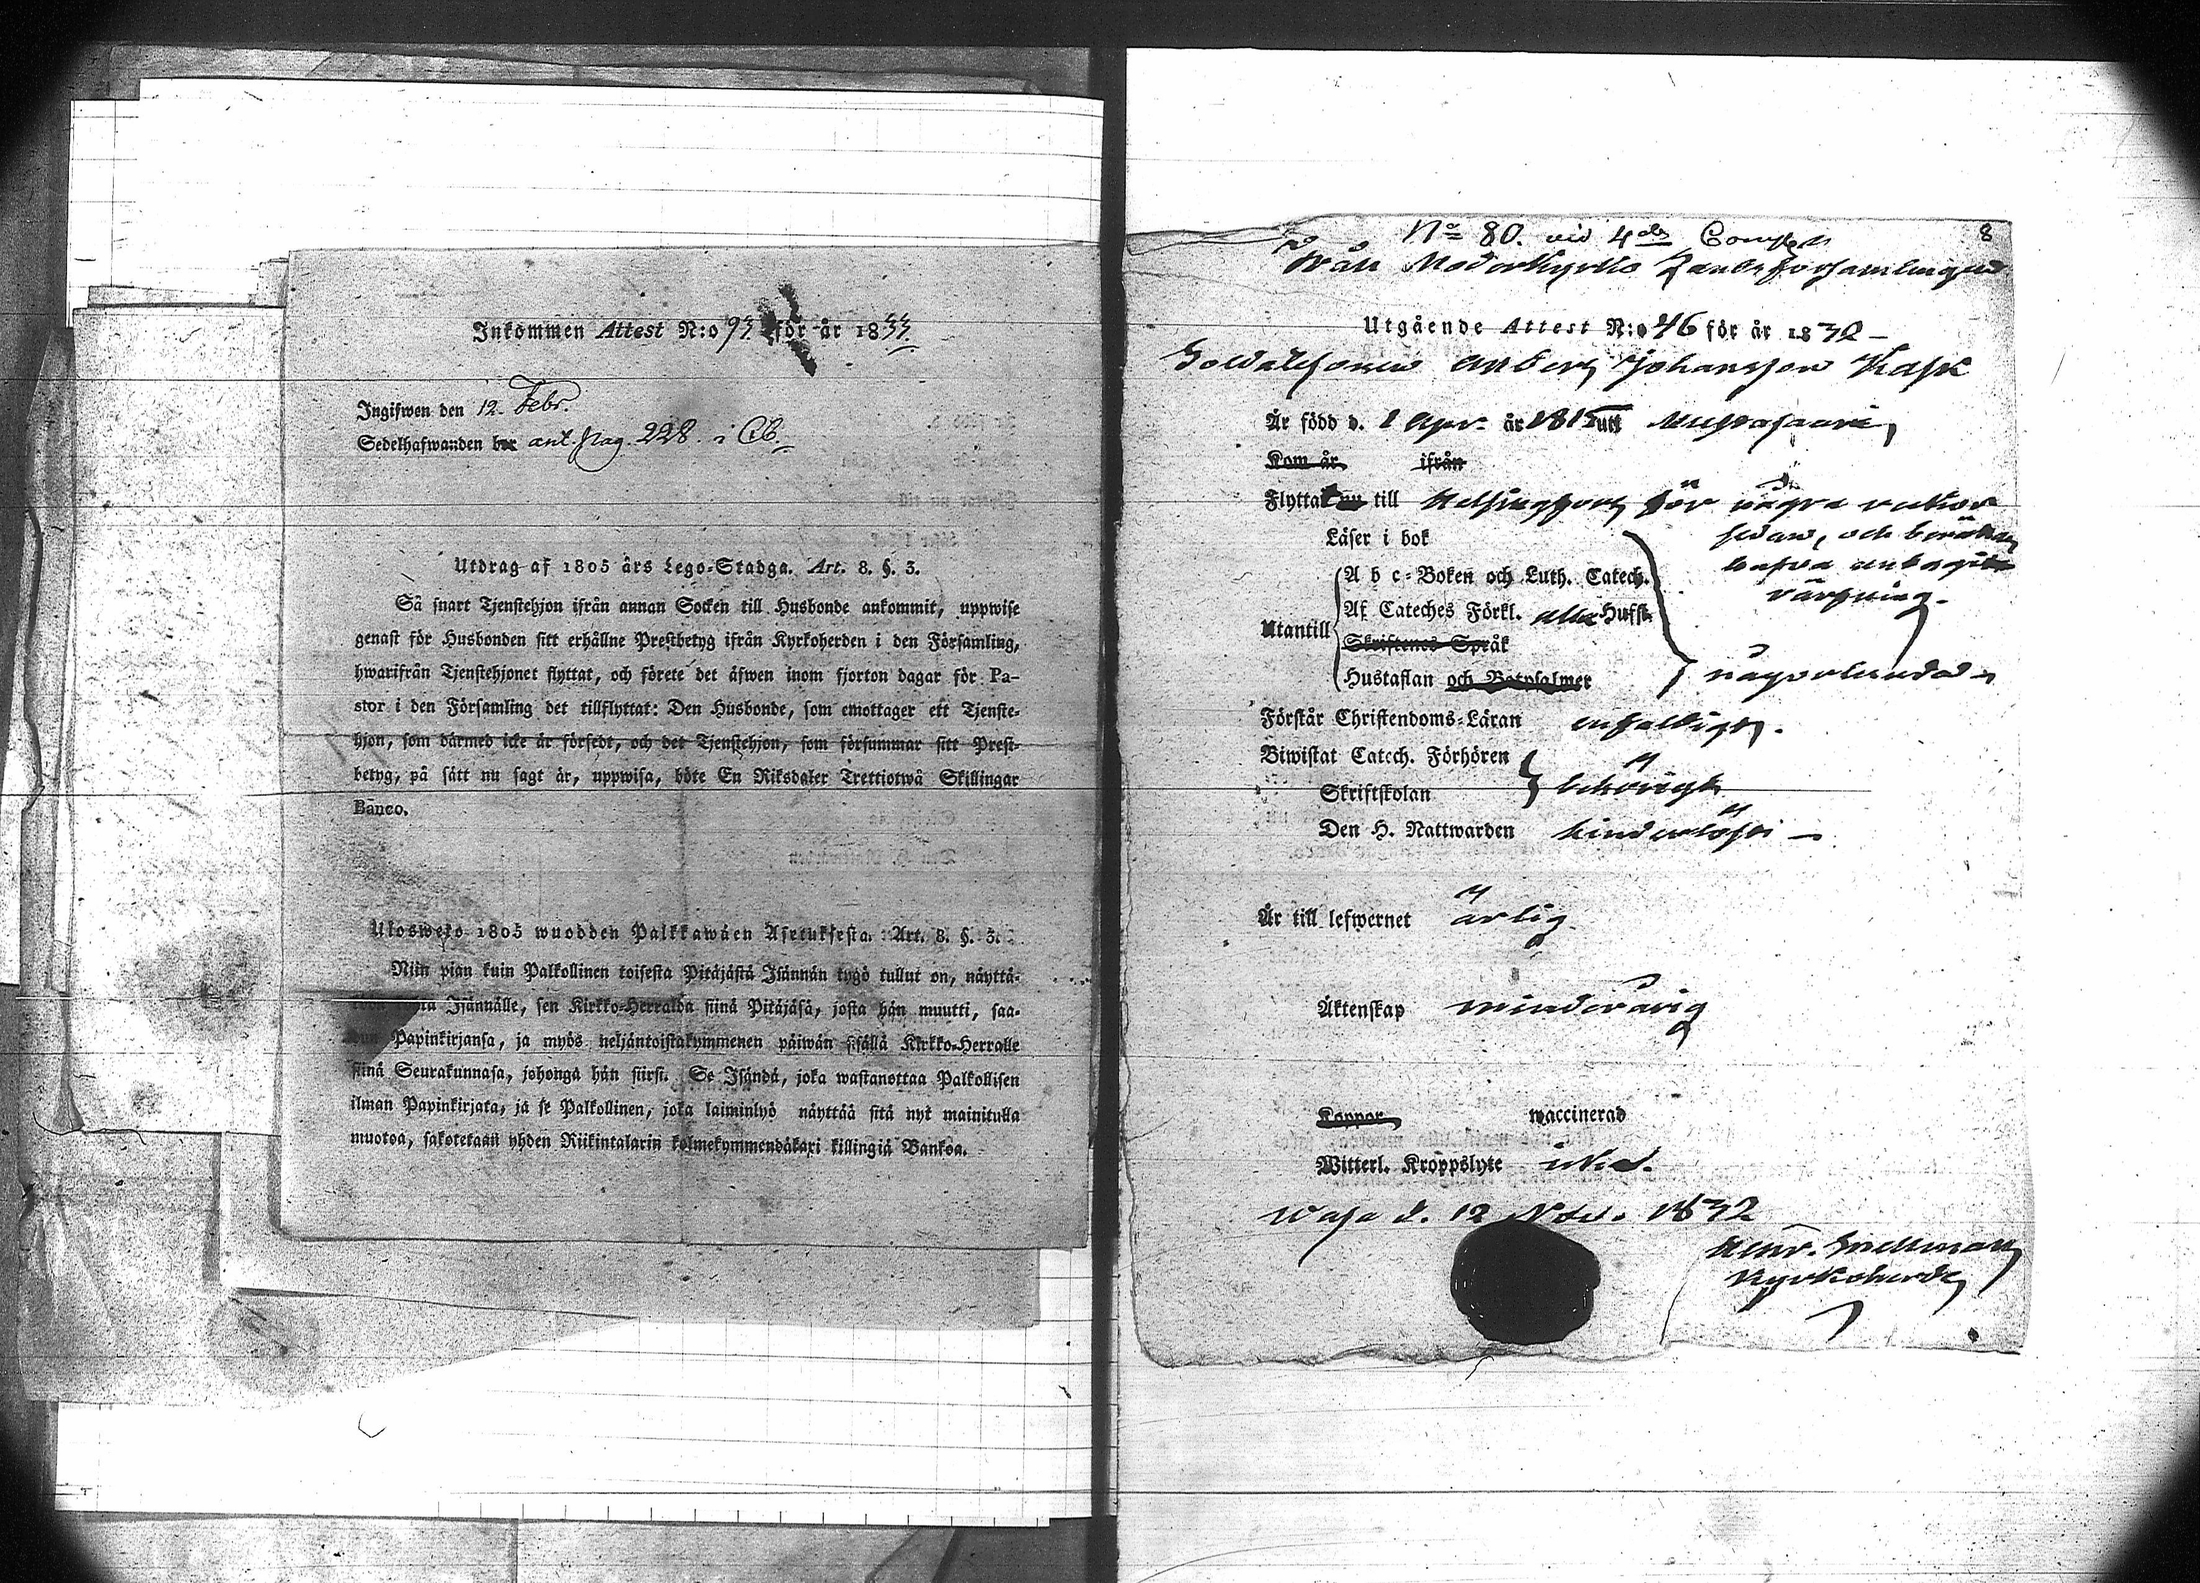 Inkommen Attest N:o 93 för år 1833.
Ingifwen den 12. Febr.
Sedelhafwanden bor ant. pag. 228. i CB.
Utdrag af 1805 års Lego-Stadga. Art. 8. §. 3.
Så snart Tjenstehjon ifrån annan Socken till Husbonde ankommit, uppwise
genast för Husbonden sitt erhållne Prestbetyg ifrån Kyrkoherden i den Församling,
hwarifrån Tjenstehjonet flyttat, och förete det äfwen inom fjorton dagar för Pa-
stor i den Församling det tillflyttat: Den Husbonde, som emottager ett Tjenste-
hjon, som därmed icke är försedt, och det Tjenstehjon, som försummar sitt Prest-
betyg, på sätt nu sagt är, uppwisa, böte En Riksdaler Trettiotwå Skillingar
Banco.
Ulosweto 1805 wuodden Palkkawäen Asetuksesta. Art. 8. §. 3.
Niin pian kuin Palkollinen toisesta Pitäjästä Isännän tygö tullut on, näyttä-
Isännälle, sen Kirkko-Herralda siinä Pitäjäsä, josta hän muutti, saa-
Papinkirjansa, ja myös neljäntoistakymmenen päiwän sisällä Kirkko-Herralle
siinä Seurakunnasa, johonga hän siirsi. Se Isändä, joka wastanottaa Palkollisen
ilman Papinkirjata, ja se Palkollinen, joka laiminlyö näyttää sitä nyt mainitulla
muotoa, sakotetaan yhden Riikintalarin kolmekymmendäkaxi killingiä Bankoa.
8
No 80. vid 4de Comp.
Från Moderkyrko Landsförsamlingen
Utgående Attest N:o 46 för år 1832
Soldatesonen Anders Johansson Kask
Är född d. 1 Apr. år 1815 uti Mustasaari,
Kom år ifrån
Flyttat nu till Helsingfors för några veckor
sedan, och
värfning.
Läser i bok
Utantill
A b c-Boken och Luth. Catech.
Af Cateches Förkl. alla Hufst.
Skriftenes Språk
Hustaflan och Botpsalmer
någorlunda
Förstår Christendoms-Läran enfaldigt.
Biwistat Catech. Förhören
Skriftskolan behörigt
Den H. Nattwarden hinderlöst
Är till lefwernet ärlig.
Äktenskap minderårig
Koppor waccinerad
Witterl. Kroppslyte icke.
Wasa d. 12 Nov. 1832
Henr. Snellman
Kyrkoherde